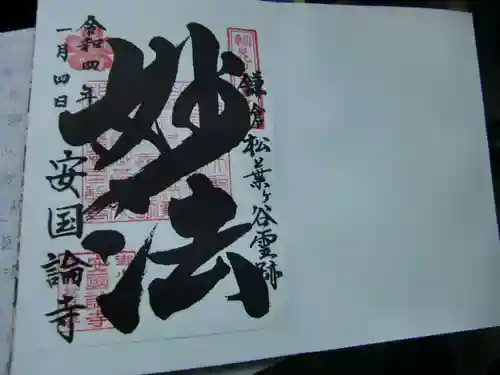 鎌倉松葉ヶ谷霊跡
妙法
令和四年
一月四日
安国論寺